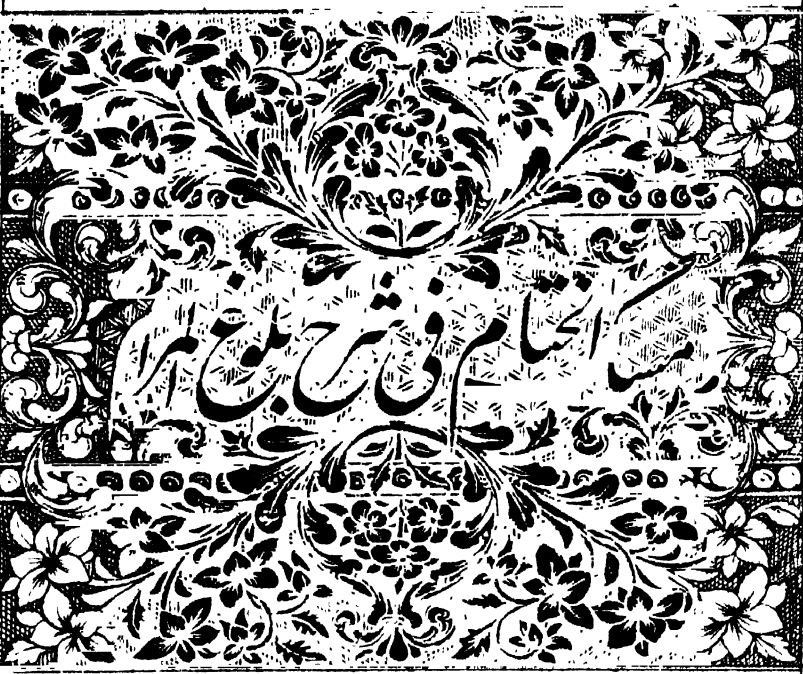 مسک الختام فی شرح بلوغ المرام